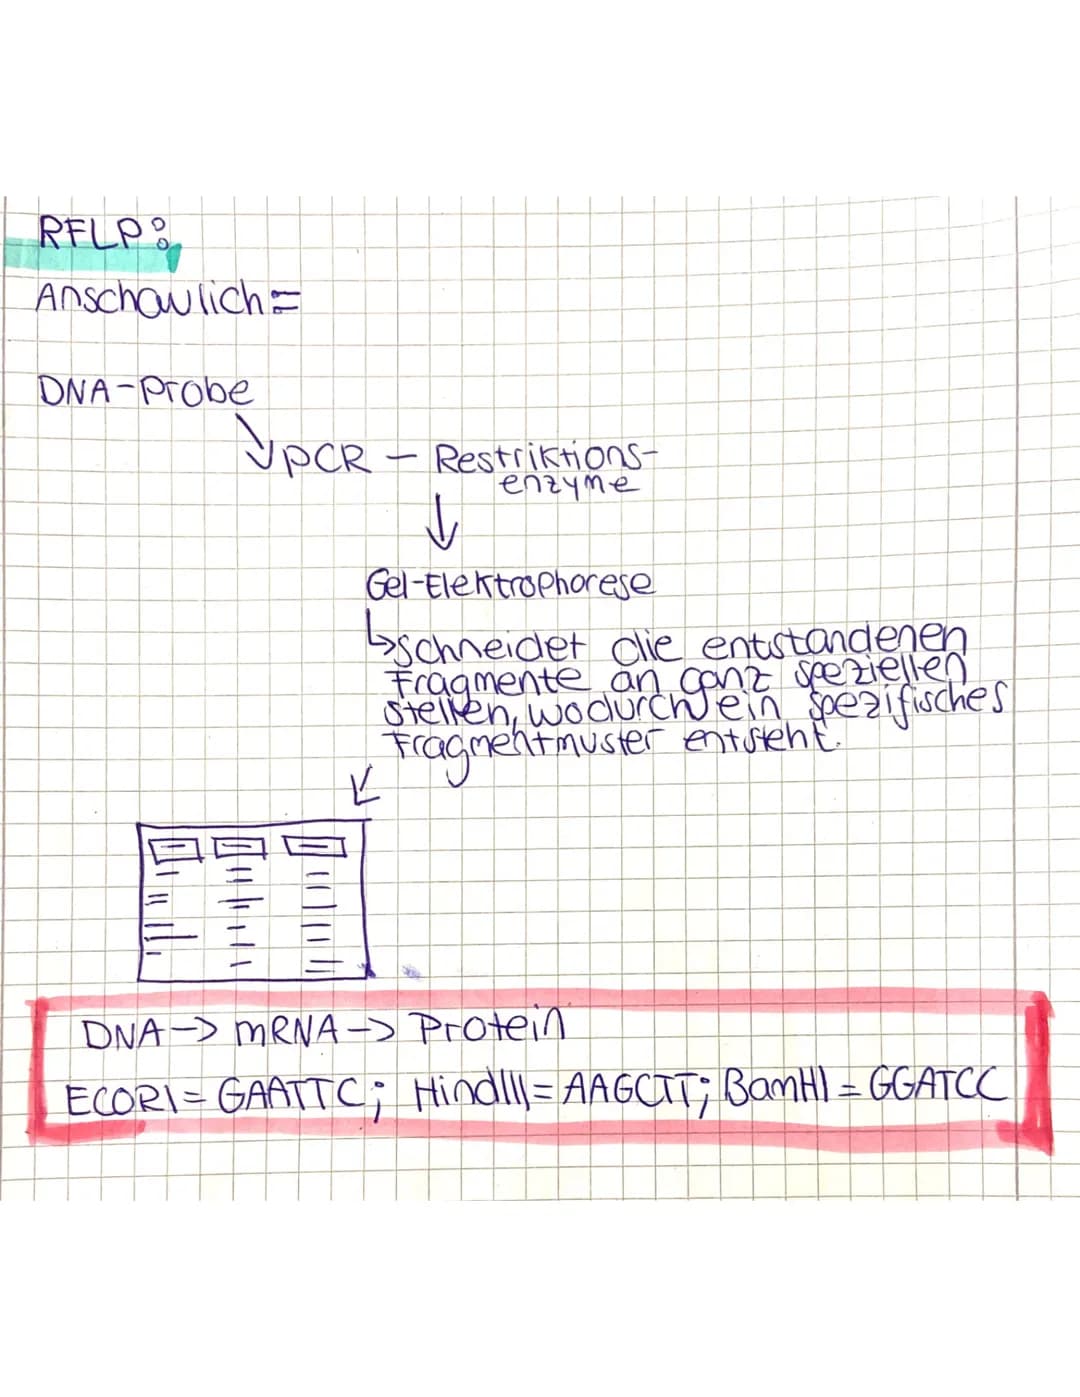 RFLP:
Anschaulich=
DNA-Probe
PCR – Restriktions-
enzyme
Gel-Elektrophorese
schneidet die entstandenen
Fragmente an ganz speziellen
Stellen, wodurch ein spezifisches
Fragmentmuster entsteht.
DNA -> mRNA -> Protein
ECORI = GAATTC; HindIII = AAGCTT; BamHI = GGATCC